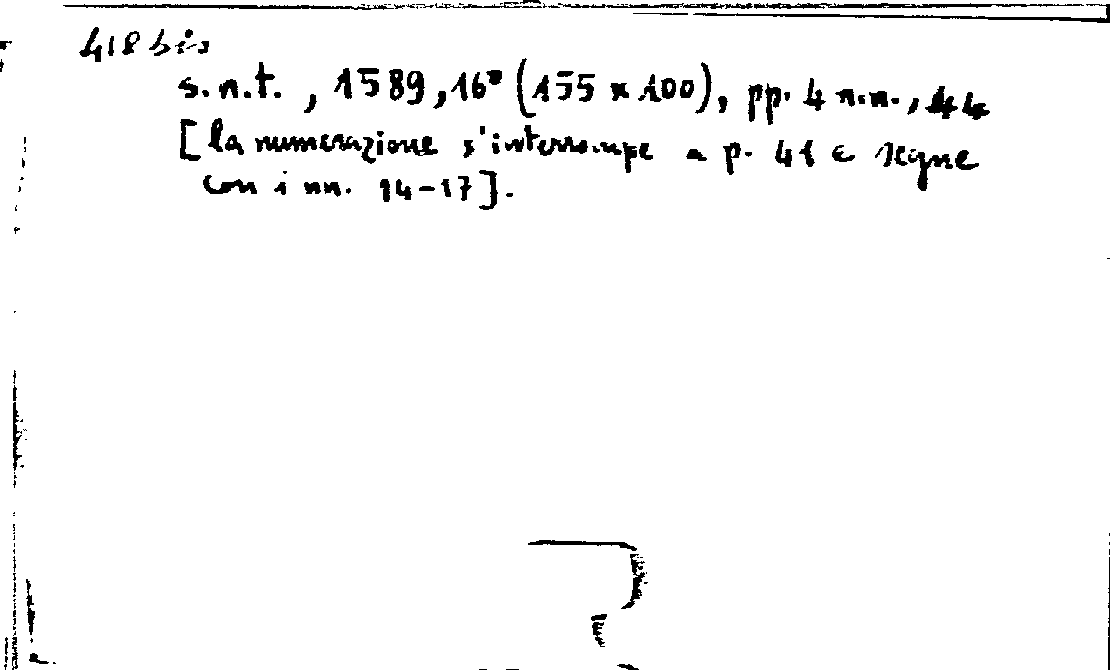 418 bis
s.n.t., 1589, 16° (155 x 100), pp. 4 n.n., 44
[la numerazione s'interrompe a p. 41 e segue
con i nn. 14-17].